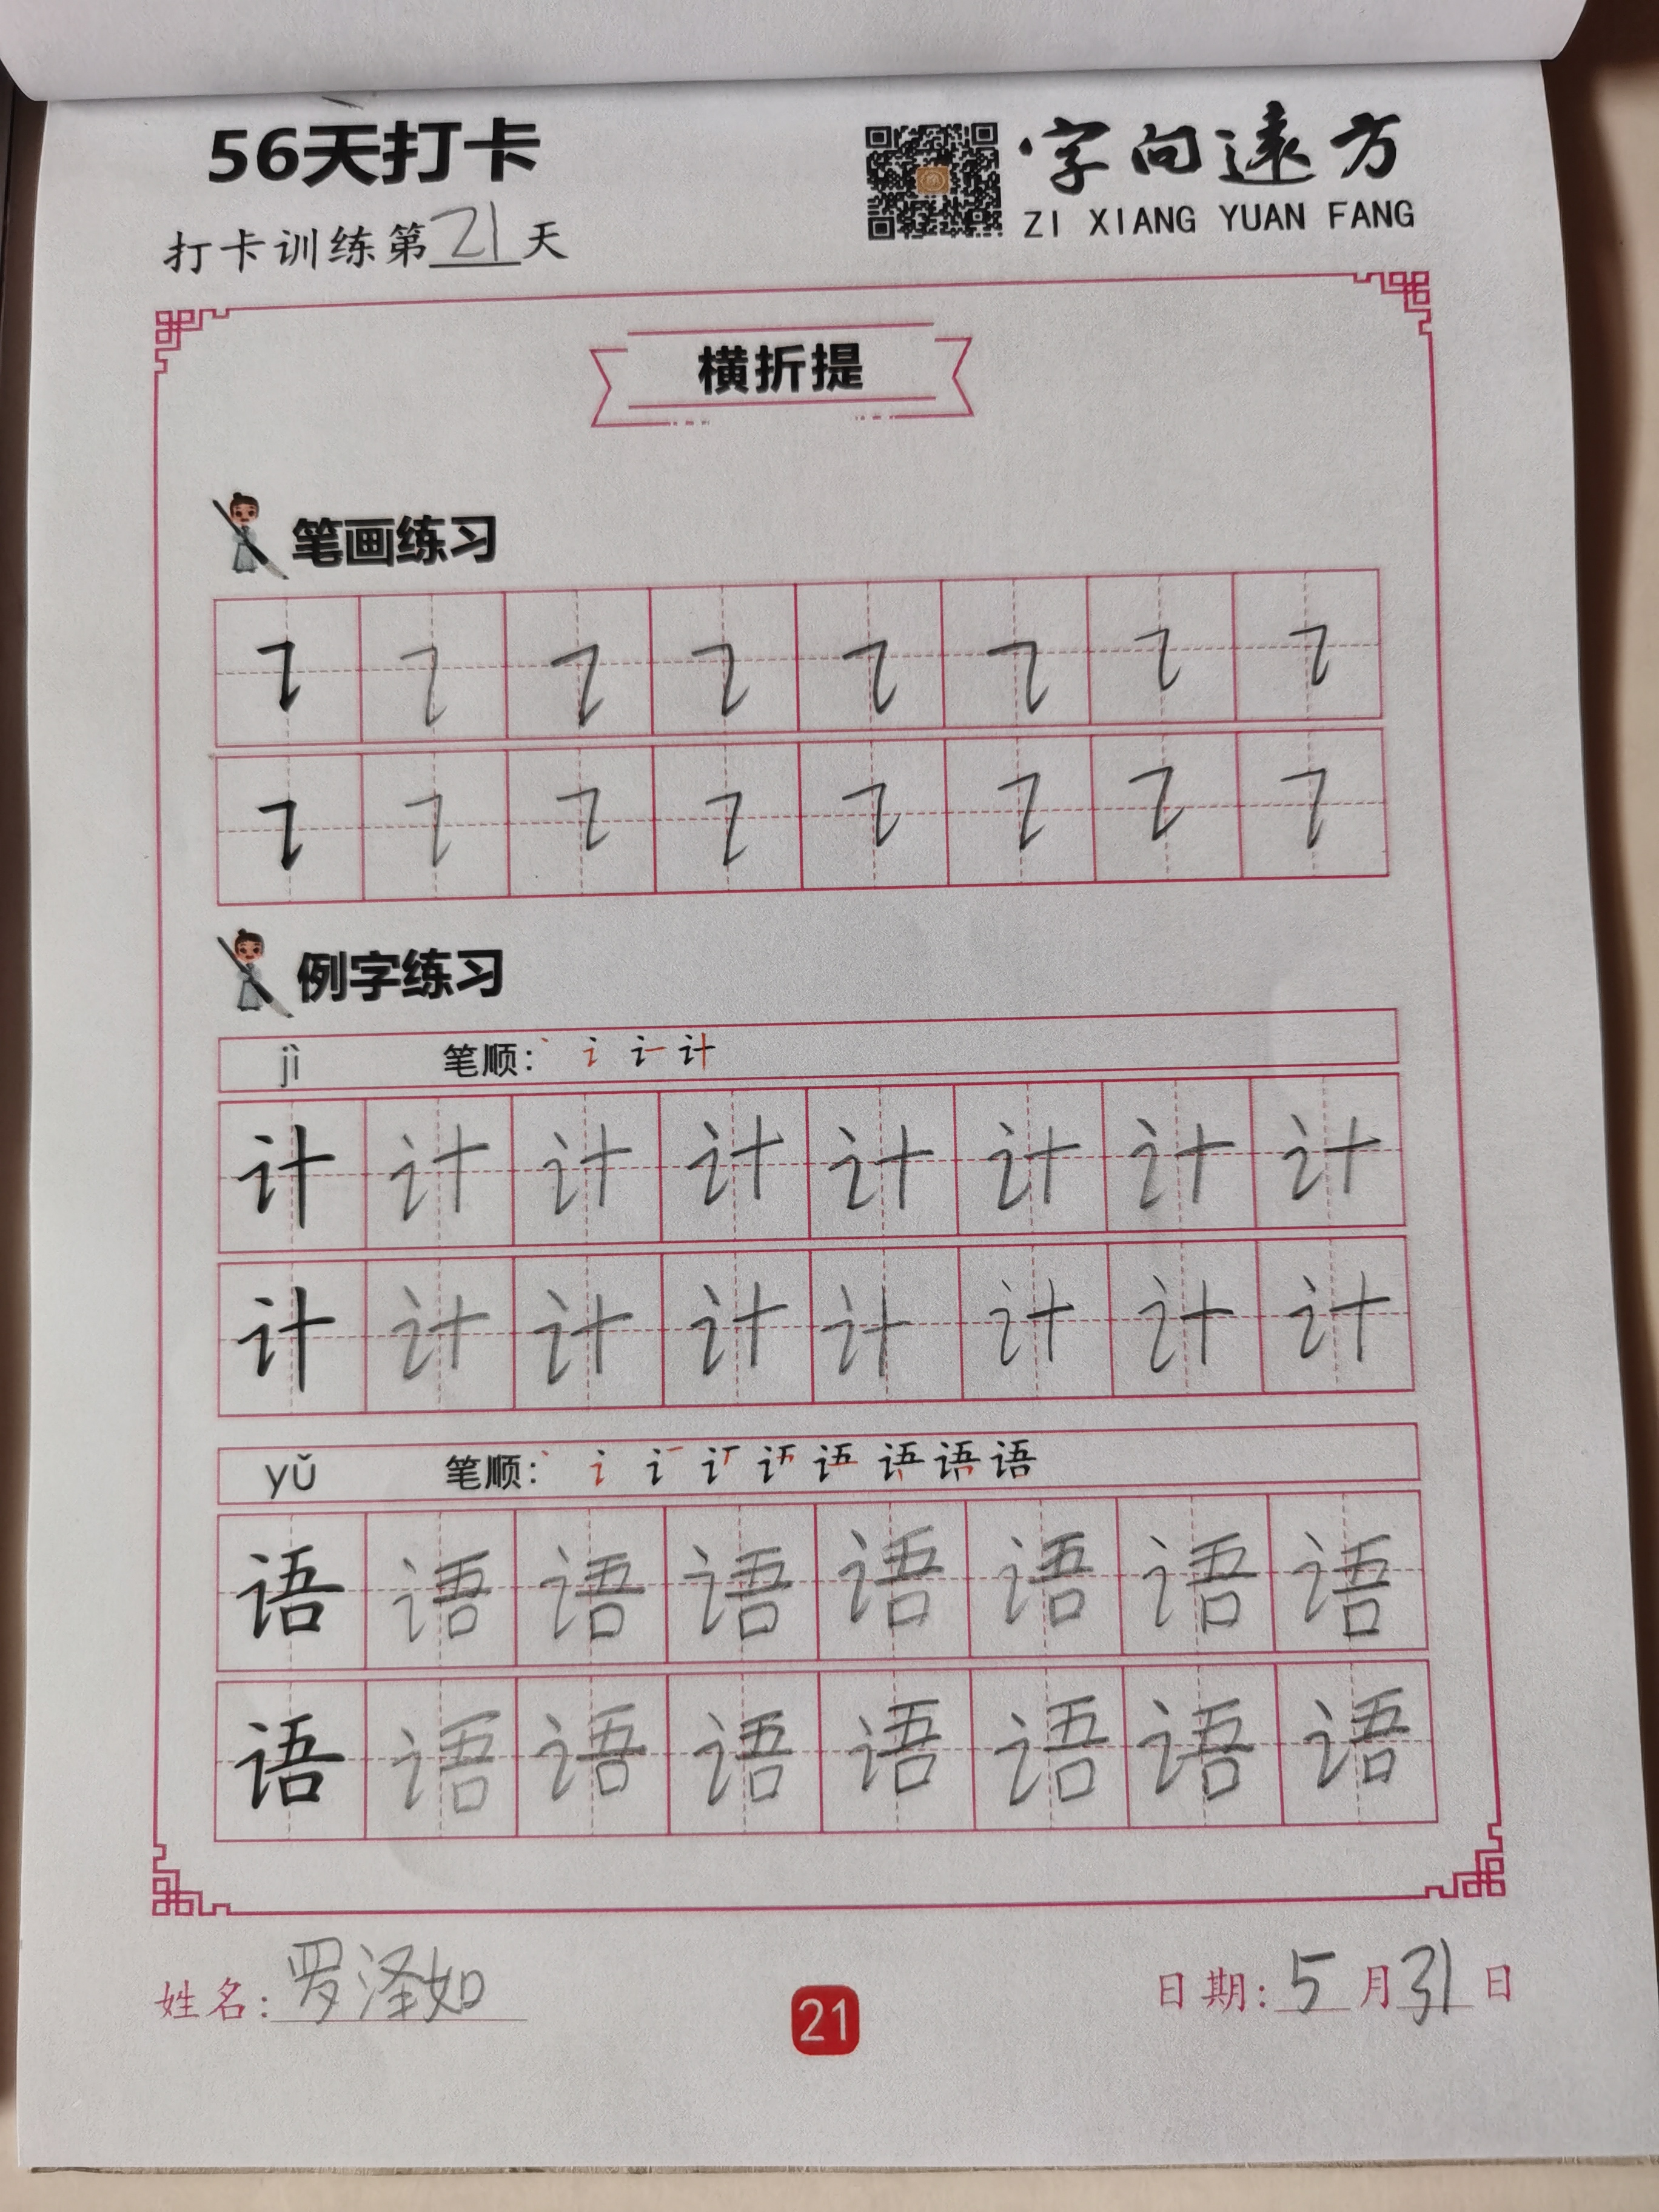 56天打卡
字向遠方
ZI XIANG YUAN FANG
打卡训练第21天
横折提
笔画练习
例字练习
jì 笔顺:
计 计 计 计 计 计 计 计
计 计 计 计 计 计 计 计
yǔ 笔顺: 语
语 语 语 语 语 语 语 语
语 语 语 语 语 语 语 语
姓名: 罗泽如
21
日期: 5月31日